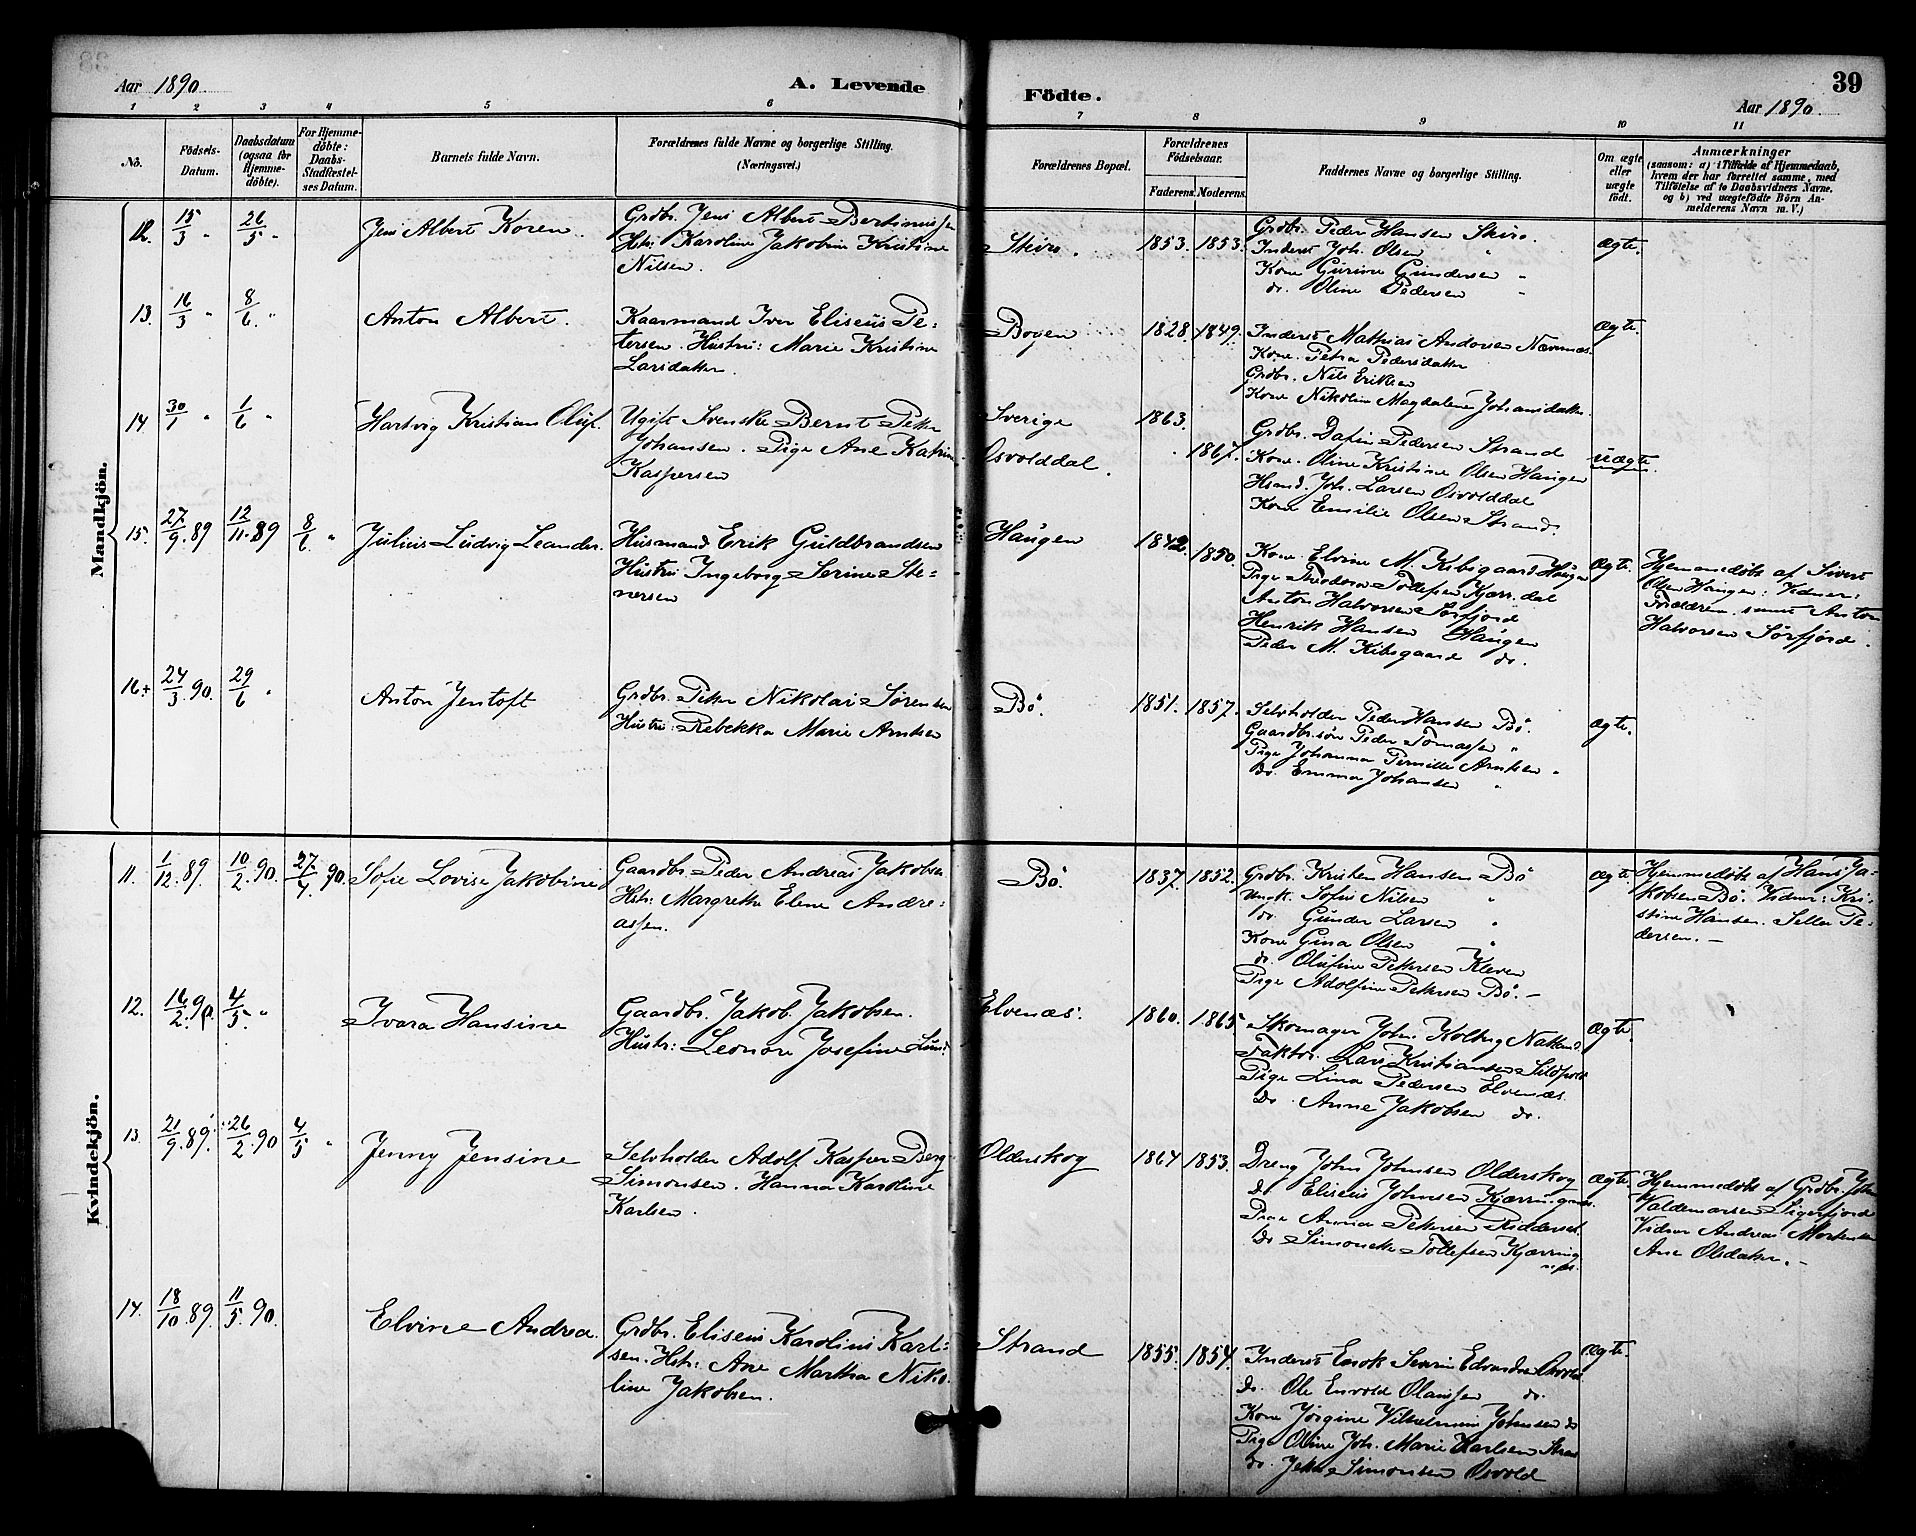 Aar 1890.
A. Levende
Födte.
39
Aar 1890.
1 2 3 4 5 6 7 8 9 10 11
No.
Födsels-Datum.
Daabsdatum (ogsaa for Hjemmedöbte).
For Hjemmedöbte: Daabs-Stadfæstelses Datum.
Barnets fulde Navn.
Forældrenes fulde Navne og borgerlige Stilling.
(Næringsvei.)
Forældrenes Bopæl.
Forældrenes Födselsaar.
Faderens. Moderens.
Faddernes Navne og borgerlige Stilling.
Om ægte eller uægte födt.
Anmærkninger
(saasom: a) i Tilfælde af Hjemmedaab,
hvem der har forrettet samme, med
Tilföielse af to Daabsvidners Navne,
og b) ved uægtefödte Börn Anmelderens Navn m. V.)
Mandkjön.
12. 15/3 " 26/5 " Jens Albert Koren.
Grdbr. Jens Albert Bertinussen
Hstr. Karoline Jakobine Kristine
Nilsen.
Skiro. 1853. 1853.
Grdbr. Peder Hansen Skiro.
Inderst Joh. Olsen "
Kone Gurine Gundersen "
do. Oline Pedersen "
Ægte.
13. 16/3 " 8/6 " Anton Albert.
Kaarmand Iver Eliseus Pe-
tersen. Hustru: Marie Kristine
Larsdatter.
Bogen 1828. 1849.
Inderst Mathias Andorsen
Kone Petra Pedersdatter
Grdbr. Nils Eriksen
Kone Nikoline Magdalene Johansdatter
Ægte.
14. 30/1 " 1/6 " Hartvig Kristian Oluf.
Ugift Svenske Bernt Petter
Johansen. Pige Ane Katrine
Kaspersen
Sverige 1863.
Osvolddal. 1867.
Grdbr. Dafin Pedersen Strand
Kone Oline Kristine Olsen Haugen
Hsmd. Joh. Larsen Osvolddal
Kone Emilie Olsen Strand.
uægte.
15. 27/9 89 12/11 89 8/6 " Julius Ludvig Leander.
Husmand Erik Guldbrandsen
Hustru Ingeborg Serine Ste-
nersen
Haugen 1842. 1850.
Kone Elvine M. Kibsgaard Haugen
Pige Theodora Tollefsen Kjærrdal
Anton Halvorsen Sørfjord
Henrik Hansen Haugen
Peder M. Kibsgaard do.
Ægte.
Hjemmedøbt af Sivert
Olsen Haugen: Vidner:
Forældrene samt Anton
Halvorsen Sørfjord.
16. 24/3 90. 29/6 " Anton Jentoft
Grdbr. Peter Nikolai Sørensen
Hustru: Rebekka Marie Arntsen
Bö. 1851. 1857.
Selvholder Peder Hansen Bö.
Gaardbr.søn Peder Tomassen "
Pige Johanna Pernille Arntsen "
do. Emma Johansen "
ægte.
Kvindekjön.
11. 1/12 89. 10/2 90. 27/4 90. Sofie Lovise Jakobine
Gaardbr. Peder Andreas Jakobsen
Hstr: Margrethe Elene Andre-
assen.
Bö. 1837. 1852.
Grdbr. Kristen Hansen Bö
Ungk. Sofus Nilsen "
do. Gunder Larsen "
Kone Gina Olsen "
do. Olufine Pettersen Kleven
Pige Adolfine Pettersen Bö. —
ægte.
Hjemmedøbt af Hans Ja-
kobsen Bö. Vidner: Kri-
stine Hansen. Selle Pe-
dersen. —
12. 16/2 90. 4/5 " Ivara Hansine
Gaardbr. Jakob Jakobsen.
Hustr: Leonore Josefine Lund.
Elvenæs. 1860. 1865
Skomager Johs. Kolberg
Faktor Lars Kristiansen
Pige Lina Pedersen Elvenæs.
Do. Anne Jakobsen do.
Ægte.
13. 21/9 89. 26/2 90 4/5 " Jenny Jensine
Selvholder Adolf Kasper Berg
Simonsen. Hanna Karoline
Karlsen.
Olderskog 1864 1853.
Dreng John Johnsen Olderskog
do. Eliseus Johnsen Kjærringnæs.
Pige Anna Pettersen
Do Simonette Tollefsen Kjærring
næs.
Ægte.
Hjemmedøbt af Grdbr. John
Valdemarsen Sigerfjord
Vidner Andreas Mortensen
Ane Olsdatter. —
14. 18/10 89. 11/5 90. Elvine Andrea.
Grdbr. Eliseus Karolius Karl-
sen. Hstr: Ane Martha Niko-
line Jakobsen.
Strand 1855. 1854.
Inderst Enok Severin Edvardsen Osvold
do. Ole Envold Olaussen do.
Kone Jørgine Vilhelmine Johnsen do
Pige Oline Joh. Marie Karlsen Strand
do. Simonsen Osvold
Ægte.